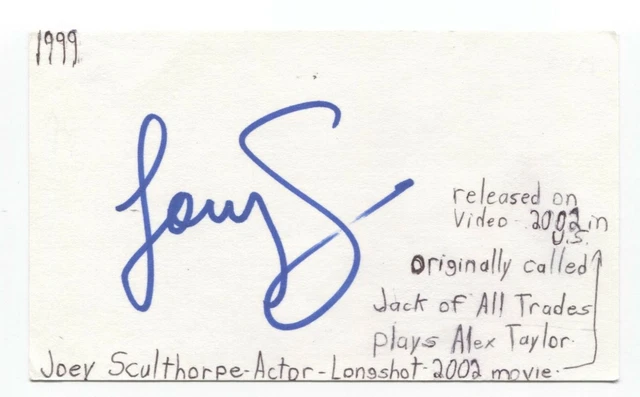 1999
Joey S
released on
Video - 2002 in
U.S.
originally called
Jack of All Trades
plays Alex Taylor.
Joey Sculthorpe-Actor-Longshot-2002 movie.